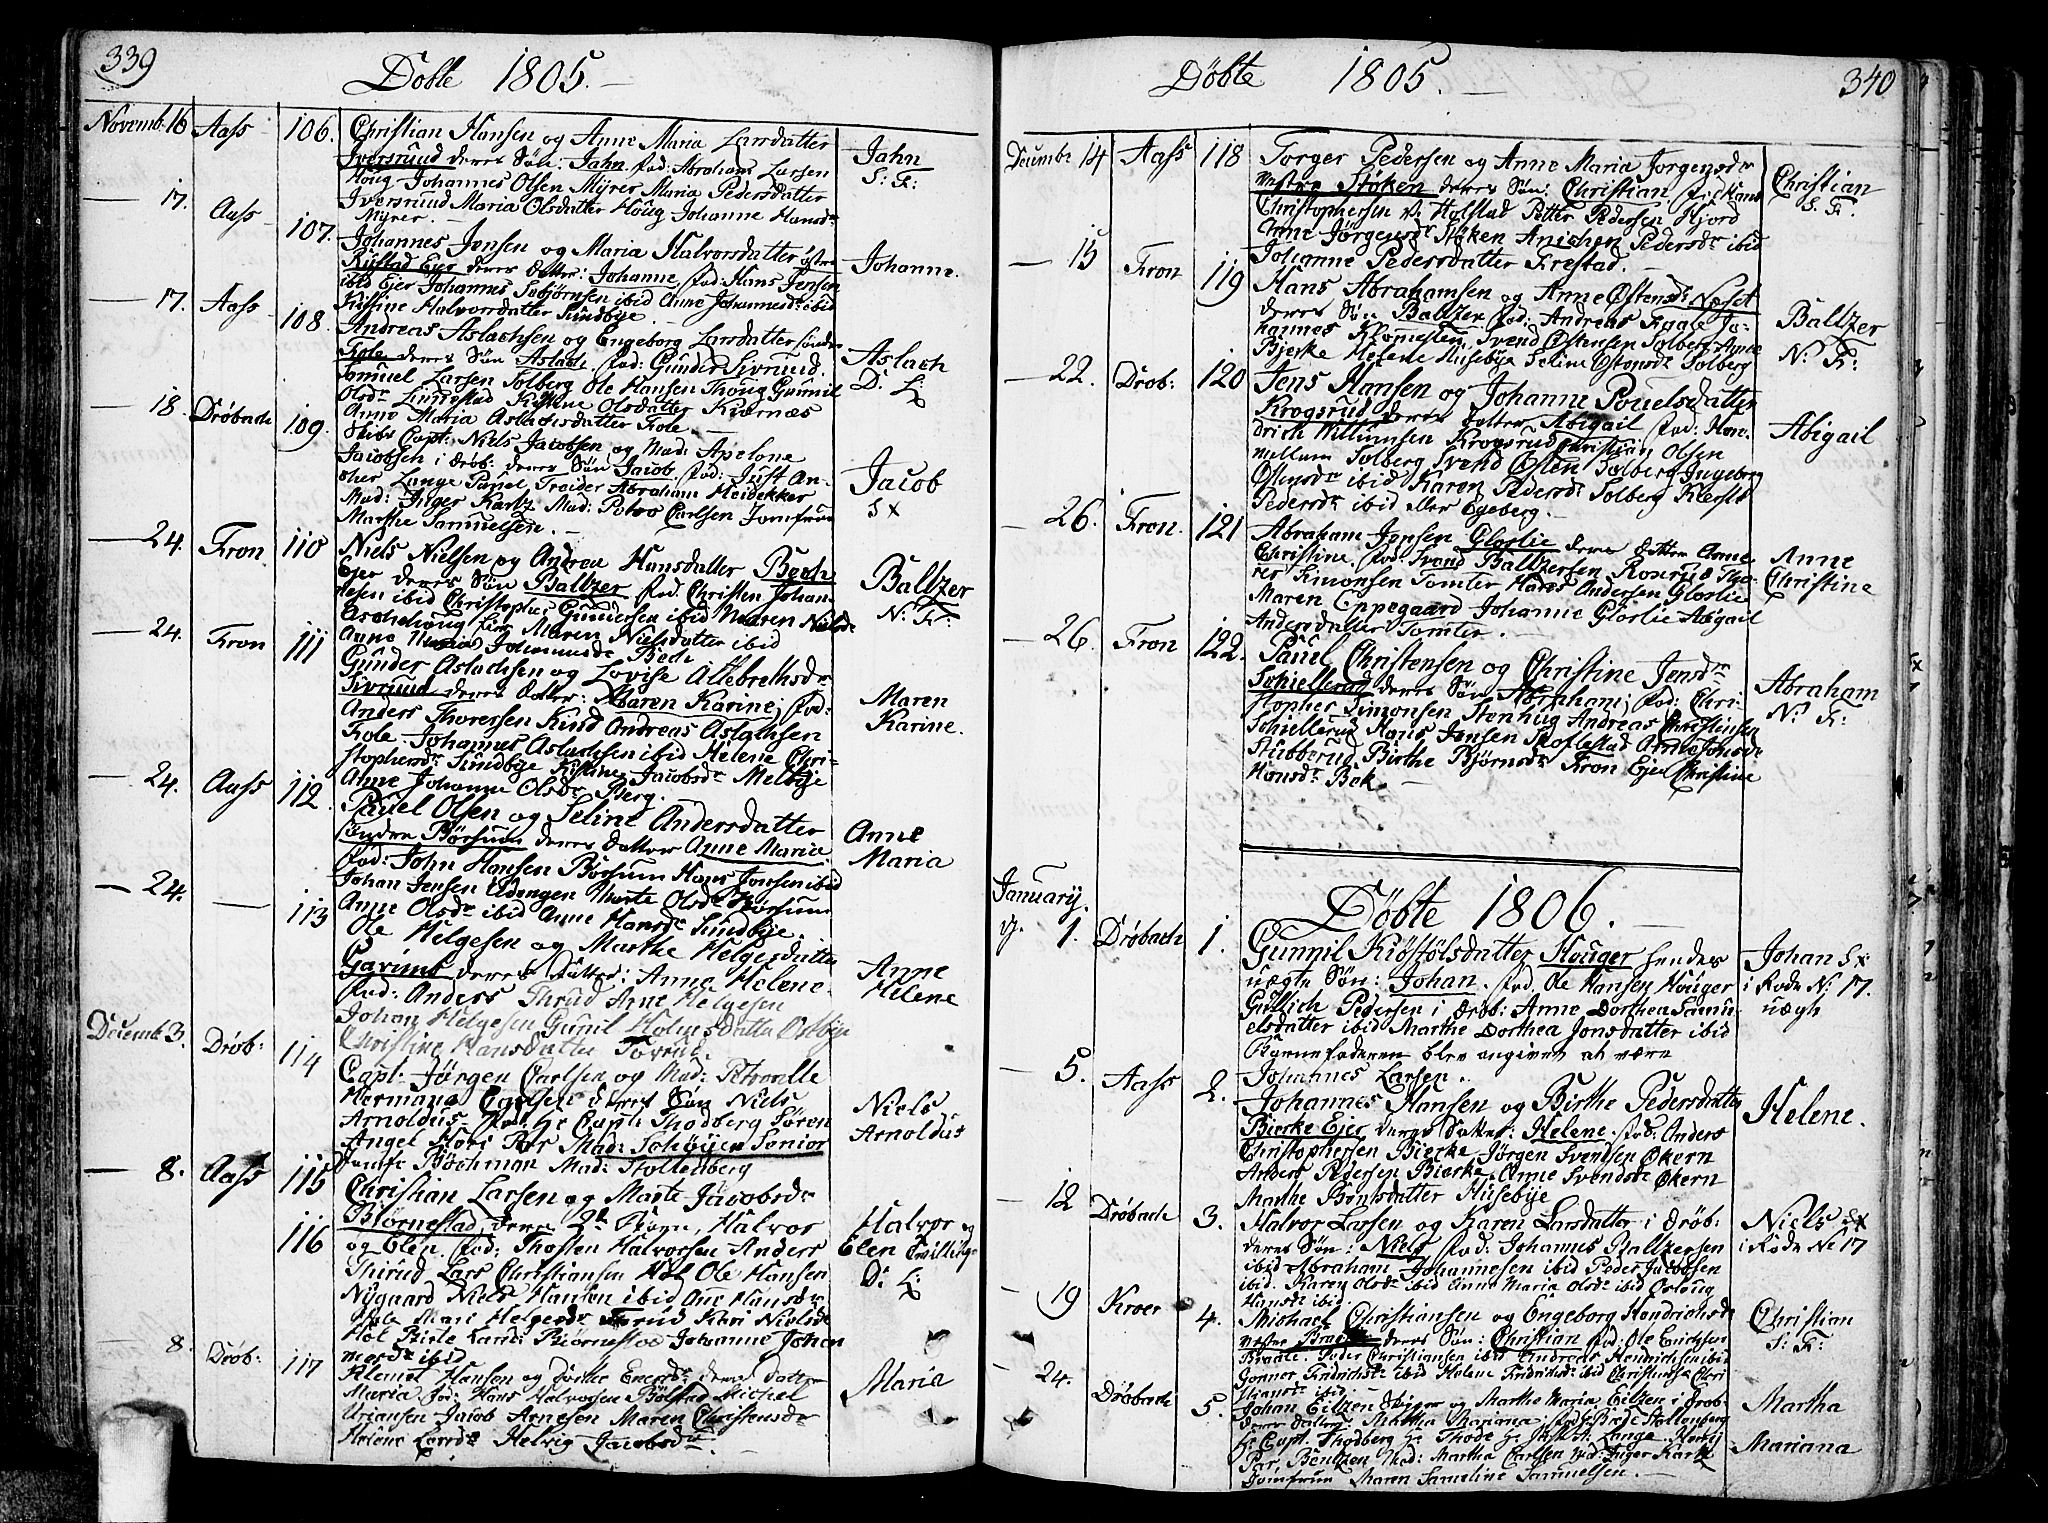 339
Døbte 1805.
Novemb. 16 Aass 106. Christian Hansen og Anne Maria Larsdatter
Iversruud deres Søn: Jahn. fad: Abraham Larsen
Houg Johannes Olsen Myrer Maria Pedersdatter
Iversruud Maria Olsdatter Houg Johanne Hansdr
Myrer.
Jahn
S: F:
17. Aass 107. Johannes Jensen og Maria Halvorsdatter østre
Rustad Ejer deres Datter: Johanne, fad: Hans Jensen
ibid Ejer Johannes ibid Anne Johannesdr ibid
Kistine Halvorsdatter Sundbye.
Johanne.
17. Aass 108. Andreas Aslachsen og Engeborg Larsdatter søndre
Fole deres Søn Aslach fad: Gunder Sivruud.
Samuel Larsen Solberg Ole Hansen Thoug Gunnil
Olsdr Kistine Olsdatter Kiærnæs
Anne Maria Aslachsdatter Fole.
Aslach
D: L:
18. Drøbach 109. Skibs Capt: Niels Jacobsen og Mad: Apelone
Jacobsen i Drøb: deres Søn Jacob fad: Just An-
cher Lange Povel Abraham Heidekker
Mad: Inger Kartz Mad: Carlsen Jomfrue
Marthe Samuelsen.
Jacob
S
24. Fron 110 Niels Nielsen og Andrea Hansdatter Bech
Ejer deres Søn Baltzer fad. Christen Johan-
nesen ibid Christopher Gundersen ibid Maren Nielsdr
Aschehoug Maren Nielsdatter ibid
Anne Johannesdr Bech
Baltzer
N: F:
24. Fron 111 Gunder Aslachsen og Lovise Allebrethsdr
Sivruud deres Datter: Maren Karine, fad:
Anders Thoversen Kind Andreas Aslachsen
Fole Johannes Aslachsen ibid Helene Chri-
stophersdr Sundbye Kistine Jacobsdr Melbye
Anne Johanne Olsdr Berg.
Maren
Karine.
24. Aass 112. Pauel Olsen og Seline Andersdatter
søndre Børsum deres Datter Anne Maria
fad: John Hansen Børsum Hans Jonsen ibid
Johan Jensen Marte Olsdr Børsum
Anne Olsdr ibid Anne Hansdr Sundbye.
Anne
Maria
24. — 113 Ole Helgesen og Marthe Helgesdatter
deres Datter: Anne Helene
fad: Anders Thrud Arne Helgesen
Johan Helgesen Gunil Holmsdatter Østbye
Christine Hansdatter
Anne
Helene
Decemb. 3. Drøb: 114 Capt. Jørgen Carlsen og Mad: Petronelle
Hermana Carlsen deres Søn Niels
Arnoldus. fad: Hr Capt: Thodberg Søren
Angel Mad: Senior
Jomfr Bochman Mad: Stoltenberg
Niels
Arnoldus
8. Aass 115 Christian Larsen og Marte Jacobsdr
116 Biørnestad, deres 2de Børn, Halvor
og Elen. fad: Thosten Halvorsen Anders
Thirud Lars Christiansen Høl Ole Hansen
Nygaard Niels Hansen ibid Ane Hansdr
Mari Helgesdr Kari Nielsdr
Høl Birte Larsdr Biørnestad Johanne Johan
nesdr ibid
Halvor og
Elen Tvillinge
D: L:
8. Drøb: 117 Klemet Hansen og Dorthe Enersdr deres Datter
Maria fad: Hans Halvorsen Bølstad Michel
Uriansen Jacob Arnesen Maren Christensdr
Helene Larsdr Helvig Jacobsdr.
Maria
Døbte 1805. 340
Decembr 14 Aass 118 Torger Pedersen og Anne Maria Jorgensdr
vestre Støken deres Søn: Christian, fad:
Christophersen v: Holstad Petter Pedersen Hjord
Anne Jørgensdr Støken Anichen Pedersdr ibid
Johanne Pedersdatter Firestad.
Christian
S. F.
15 Fron 119 Hans Abrahamsen og Anne Østensdr Næset
deres Søn Baltzer fad: Andreas Jo-
hannes Svend Østensen Solberg Anne
Bierke Helene Husebye Seline Østensdr Solberg
Baltzer
N: F:
22. Drøb: 120 Jens Hansen og Johanne Pouelsdatter
Krogsrud deres Datter Abigail fad: Hen-
drich Willumsen Krogsrud Christian Olsen
mellum Solberg Svend Østen Solberg Ingeborg
Østensdr ibid Karen Pedersdr Solberg
Pedersdr ibid eller Egeberg.
Abigail
26. Fron. 121 Abraham Jensen Glorlie deres Datter Anne
Christine, fad: Svend Baltzersen
Simonsen Tomter Hans Andersen Glorlie
Maren Eppegaard Johanne Glorlie Abigail
Andersdatter Tomter.
Anne
Christine
26. Fron 122. Pauel Christensen og Christine Jensdr
Schiellerud deres Søn Abraham, fad: Chri-
stopher Simonsen Stenhug Andreas Christensen
Schiellerud Hans Jensen Anne Jonsdr
Stubberud Birthe Bjørnsdr Fron Ejer Christine
Hansdr Bek
Abraham
N: F:
Døbte 1806.
January
d. 1. Drøbach 1. Gunnil Kiøstølsdatter Houger hendes
uægte Søn: Johan. fad. Ole Hansen Houger
Gullich Pedersen i Drøb: Anne Dorthea Samu-
elsdatter ibid Marthe Dorthea Jonsdatter ibid
Barnefaderen blev angivet at være
Johannes Larsen.
Johan
i Rode N: 17.
uægte
5. Aass 2. Johannes Hansen og Birthe Pedersdatter
Bierke Ejer deres Datter: Helene. fad: Anders
Christophersen Bierke Jørgen Svendsen Økern
Anders Pedersen Bierke Anne Svendsdr Økern
Marthe Husebye
Helene.
12 Drøbach 3. Halvor Larsen og Karen Larsdatter i Drøb:
deres Søn: Niels fad: Johannes Baltzersen
ibid Abraham Johannesen ibid Peder Jacobsen
ibid. Karen Olsdr ibid Anne Maria Olsdr ibid Oslaug
Hansdr ibid
Niels
i Rode No 17
19 Kroer 4. Michael Christiansen og Engeborg Hendrichsdr
vestre Braate deres Søn: Christian fad: Ole Erichsen
Braate. Peder Christiansen ibid Andreas Hendrichsen ibid
Gunner ibid Helene ibid Christense Chri
stiansdr ibid
Christian
S: F:
24. Drøbach 5. Johan Eilzen og Marthe Maria Eilzen i Drøb:
deres datter: Martha Mariana, fad: Stoltenberg
Hr Capt: Thodberg Hr Thode Hr Just A: Lange
Par Bentzen Mad: Martha Carlsen Mad: Inger Kartz
Jomfrue Maren Sameline Samuelsen.
Martha
Mariana